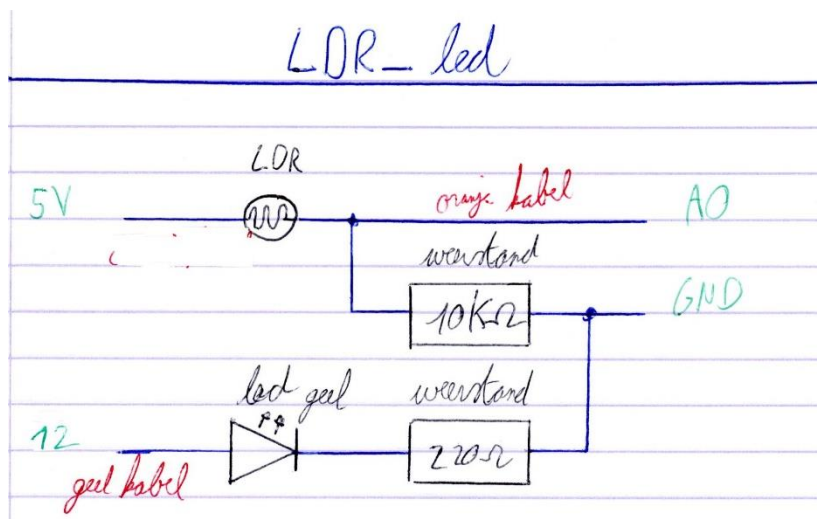 LDR_ led
LDR
5V
oranje kabel
A0
weerstand
10KΩ
GND
led geel
weerstand
12
220Ω
geel kabel